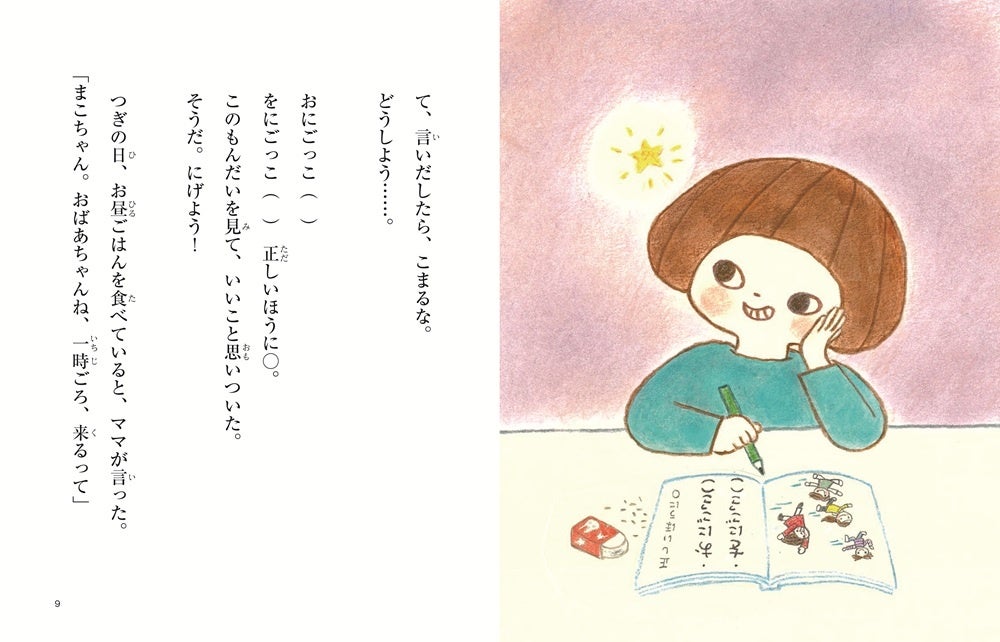 て、言いだしたら、こまるな。
どうしよう……。
おにごっこ（　）
をにごっこ（　）　正しいほうに○。
このもんだいを見て、いいこと思いついた。
そうだ。にげよう！
つぎの日、お昼ごはんを食べていると、ママが言った。
「まこちゃん。おばあちゃんね、一時ごろ、来るって」
9
正しいほうに○
・おにごっこ（）
・をにごっこ（）